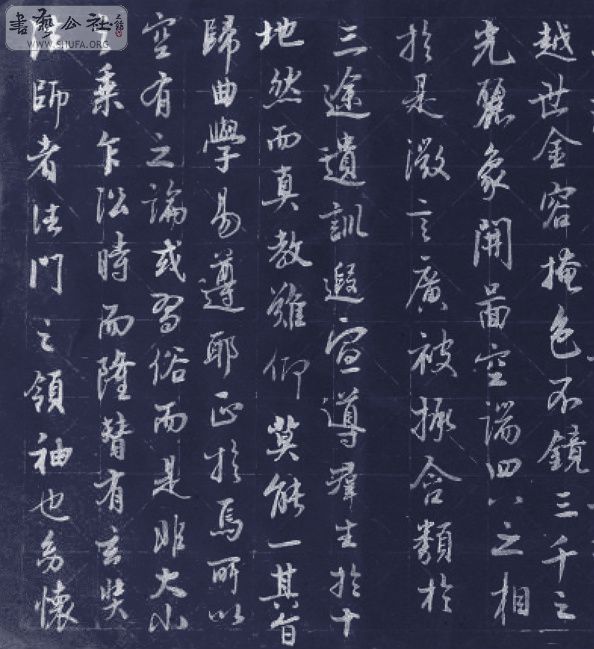 書藝公社
WWW.SHUFA.ORG
越世金容掩色不鏡三千之
光麗象開啚空端四八之相
於是微言廣被拯含類於
三途遺訓遐宣導羣生於十
地然而真教難仰莫能一其旨
歸曲學易遵耶正於焉所以
空有之論或習俗而是非大小
乘乍沿時而隆替有玄奘
法師者法門之領袖也幼懷